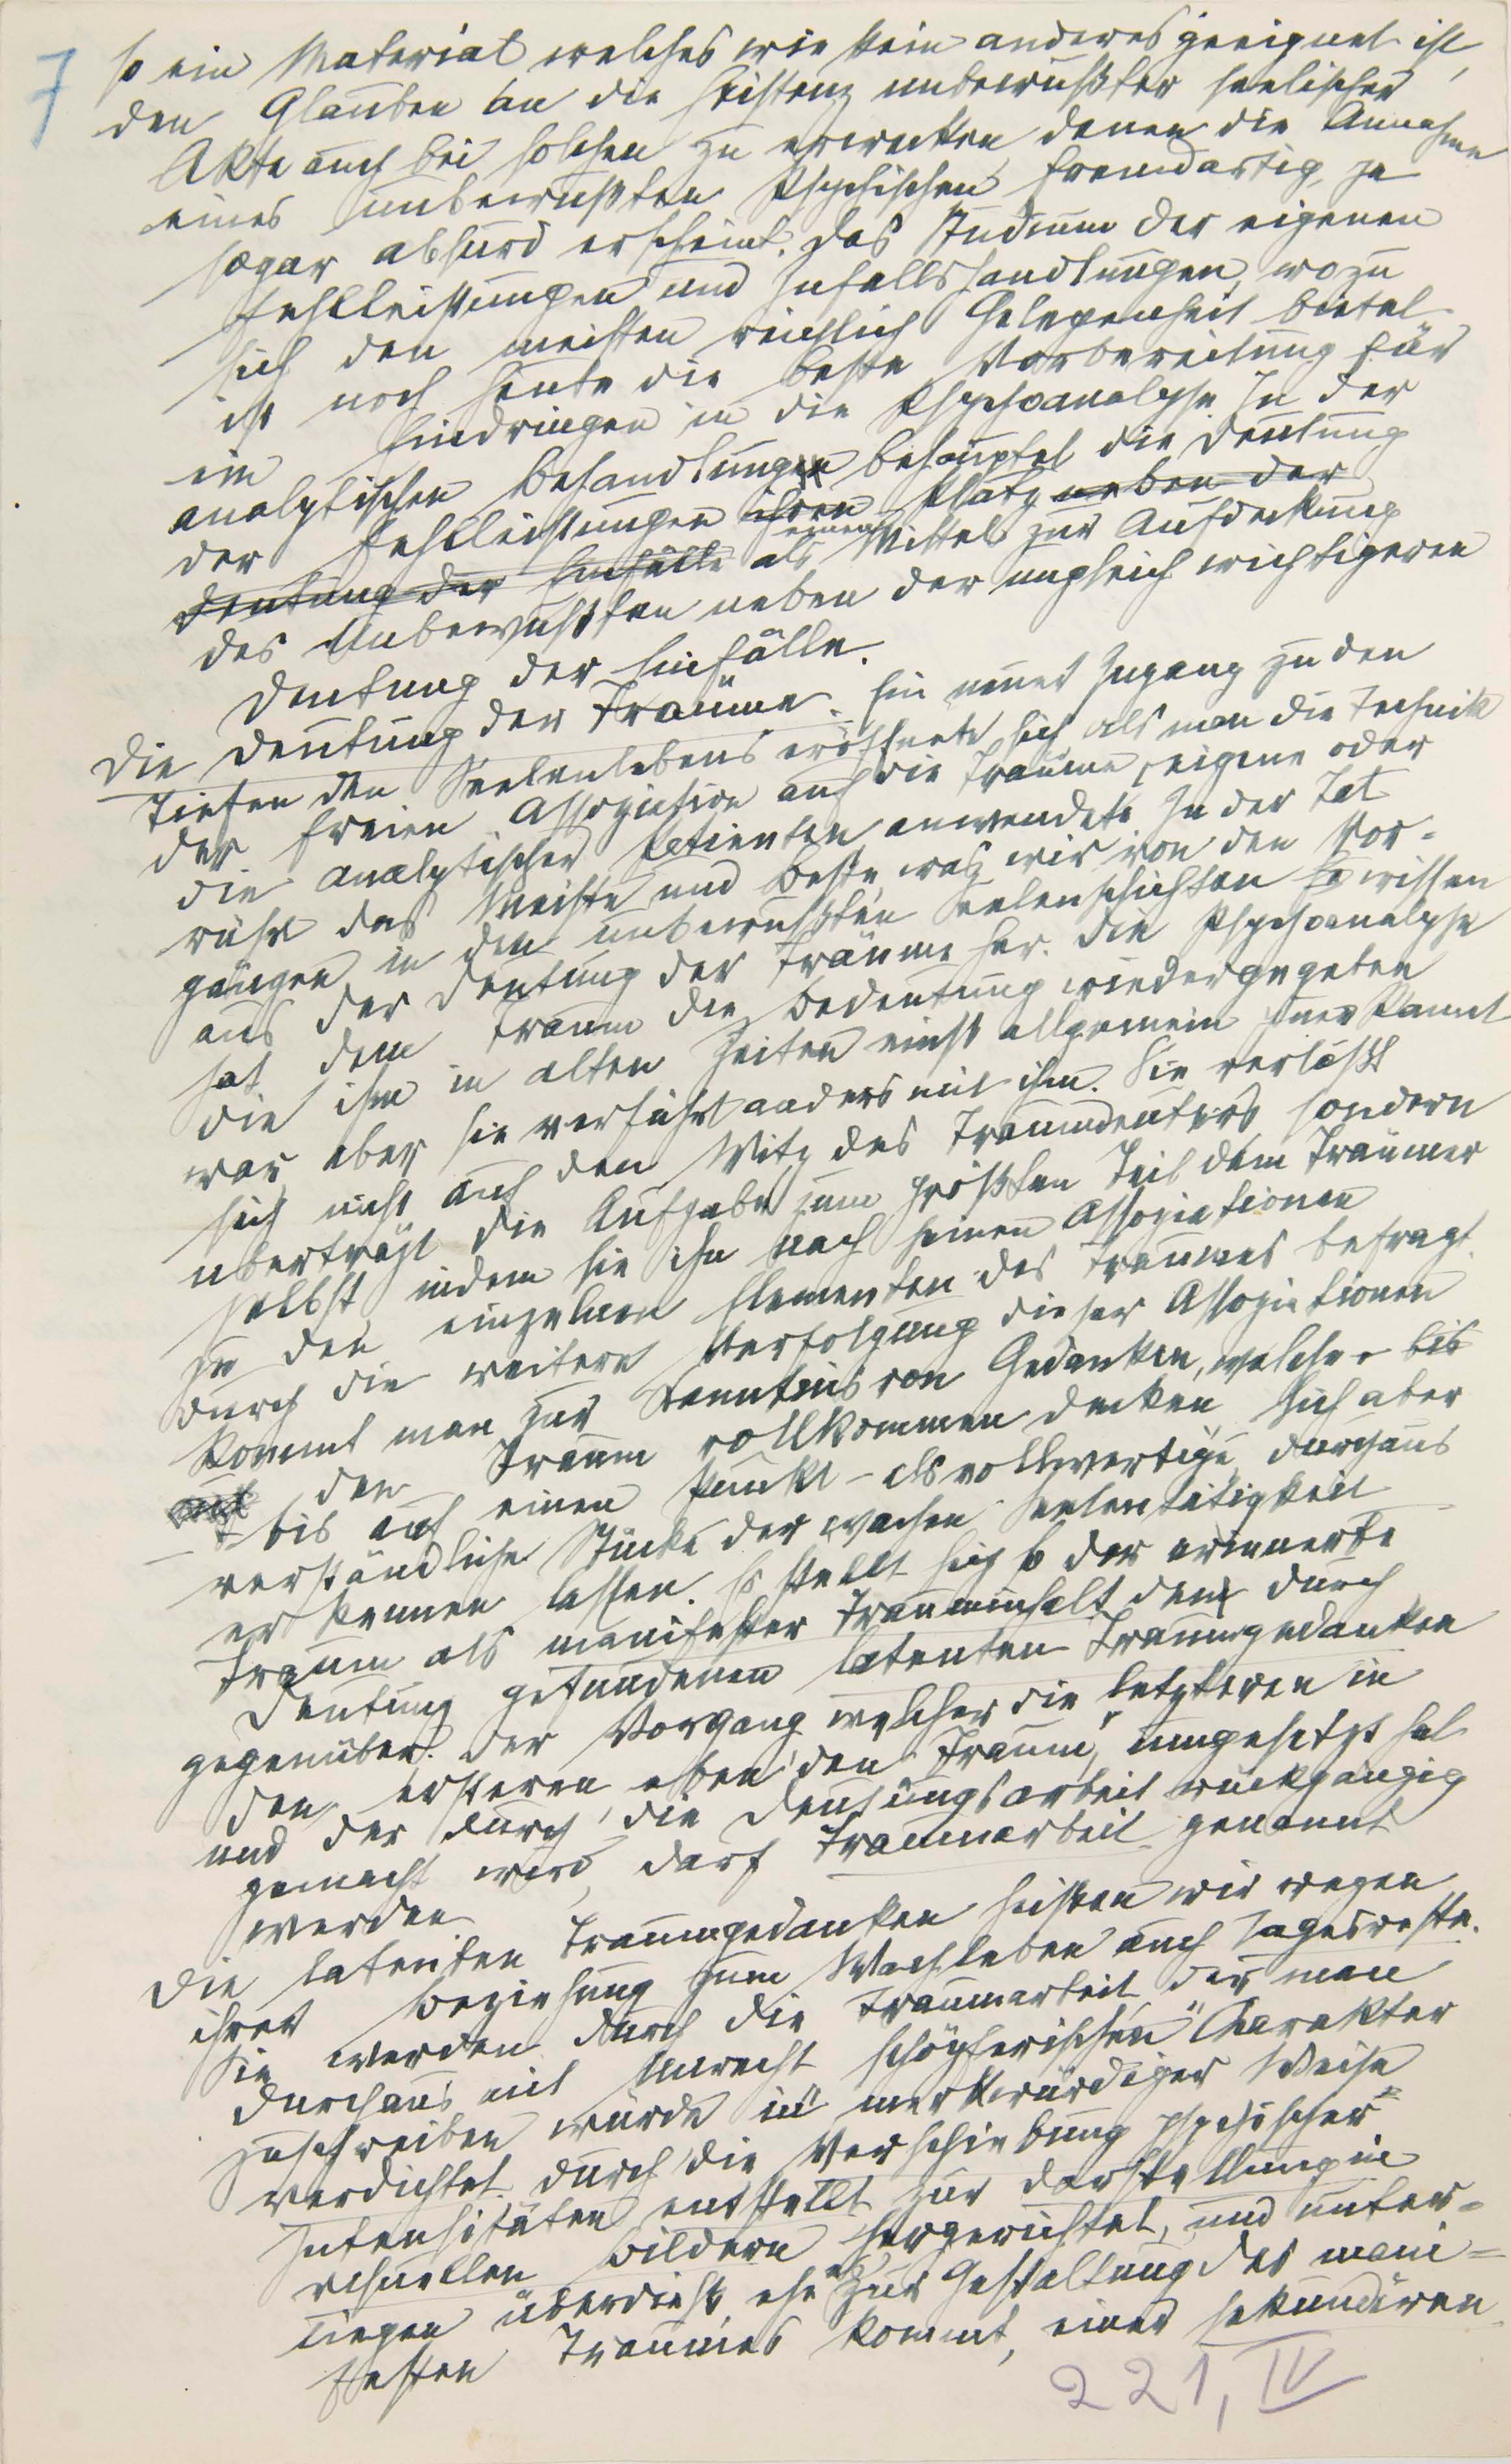 7
so ein Material welches wie kein anderes geeignet ist,
den Glauben an die Existenz unbewußter seelischer
Akte auch bei solchen zu erwecken denen die Annahme
eines unbewußten Psychischen fremdartig, ja
sogar absurd erscheint. Das Studium der eigenen
Fehlleistungen und Zufallshandlungen, wozu
sich den meisten reichlich Gelegenheit bietet
ist noch heute die beste Vorbereitung für
ein Eindringen in die Psychoanalyse In der
analytischen Behandlung behauptet die Deutung
der Fehlleistungen ihren Platz neben der
Deutung der Einfälle als eines Mittels zur Aufdeckung
des Unbewußten neben der ungleich wichtigeren
Deutung der Einfälle.
Die Deutung der Träume. Ein neuer Zugang zu den
Tiefen des Seelenlebens eröffnete sich als man die Technik
der freien Assoziation auf die Träume, eigene oder
die analytischer Patienten anwendete In der Tat
rührt das Meiste und Beste was wir von den Vor-
gängen in den unbewußten Seelenschichten wissen
aus der Deutung der Träume her. Die Psychoanalyse
hat dem Traum die Bedeutung wiedergegeben
die ihm in alten Zeiten einst allgemein zuerkannt
war, aber sie verfährt anders mit ihm. Sie verläßt
sich nicht auf den Witz des Traumdeuters, sondern
überträgt die Aufgabe zum größten Teil dem Träumer
selbst, indem sie ihn nach seinen Assoziationen
zu den einzelnen Elementen des Traumes befragt.
Durch die weitere Verfolgung dieser Assoziationen
kommt man zur Kenntnis von Gedanken, welche - bis
auf den Traum vollkommen decken, sich aber
- bis auf einen Punkt - als vollwertige, durchaus
verständliche Stücke der wachen Seelentätigkeit
erkennen lassen. Es stellt sich so der erinnerte
Traum als manifester Trauminhalt den durch
Deutung gefundenen latenten Traumgedanken
gegenüber. Der Vorgang welcher die letzteren in
den ersteren eben "den Traum", umgesetzt hat
und der durch die Deutungsarbeit rückgängig
gemacht wird, darf Traumarbeit genannt
werden
Die latenten Traumgedanken heißen wir wegen
ihrer Beziehung zum Wachleben auch Tagesreste.
Sie werden durch die Traumarbeit der man
durchaus mit Unrecht "schöpferischen" Charakter
zuschreiben würde in merkwürdiger Weise
verdichtet durch die Verschiebung psychischer
Intensitäten entstellt zur Darstellung in
visuellen Bildern hergerichtet, und unter-
liegen überdies, ehe es zur Gestaltung des mani-
festen Traumes kommt, einer sekundären
221, IV